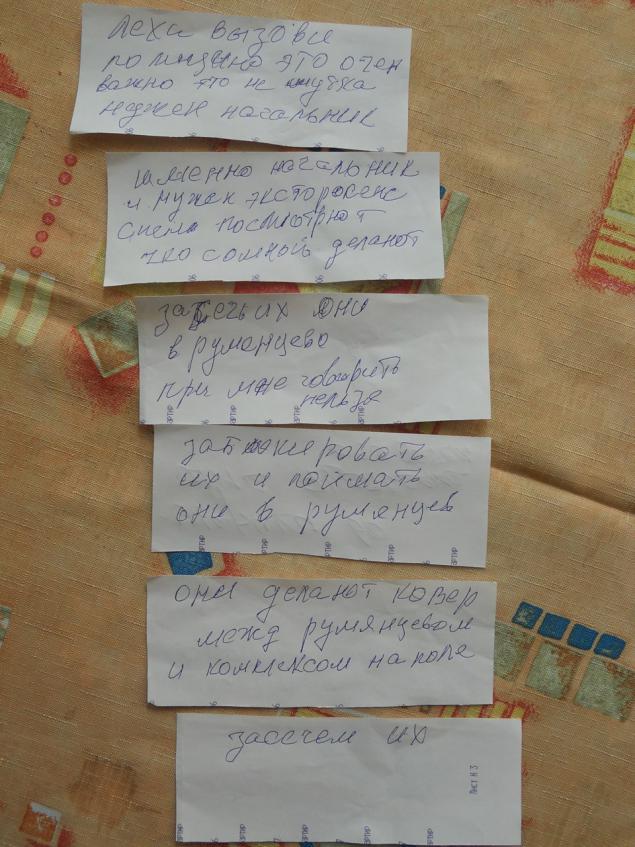 Леха вызови
полицию это очен
важно это не шутка
нужен начальник
именно начальник
и нужен экстросенс
посмотрют
что сомной делают
засечь их они
в румянцево
при мне говорить
нельзя
заблокировать
их и поймать
они в румянцев
они делают ковер
межд румянцевом
и комплексом на поле
засечем их
Лист N 3